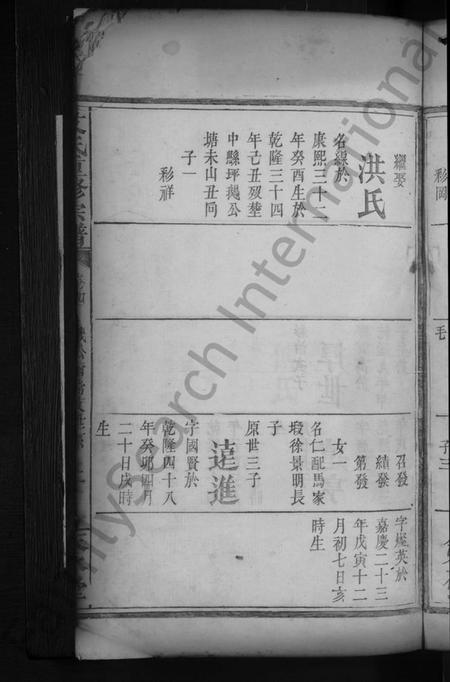 繼娶
洪氏
名線於
康熙三十二
年癸酉生於
乾隆三十四
年己丑歿塟
中縣坪鵝公
塘未山丑向
子一
彩祥
召發
績發
第發
女一
名仁配馬家
塅徐景明長
子
原世三子
遠進
字國賢於
乾隆四十八
年癸卯四月
二十日戌時
生
字握英於
嘉慶二十三
年戊寅十二
月初七日亥
時生
毛
子三
FamilySearch International